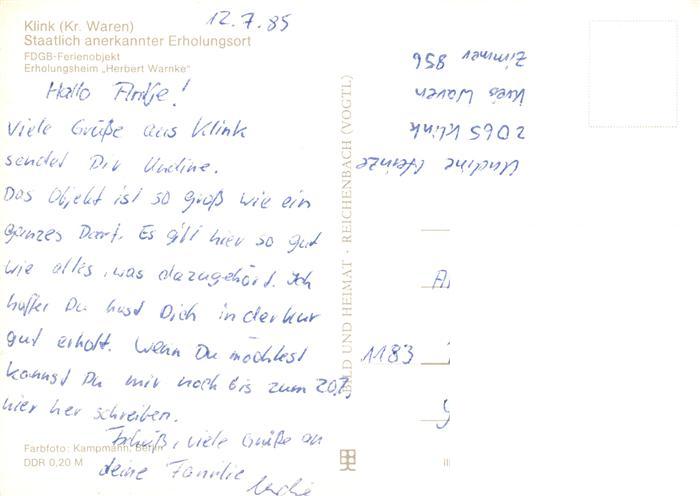 12.7.85
Klink (Kr. Waren)
Staatlich anerkannter Erholungsort
FDGB-Ferienobjekt
Erholungsheim „Herbert Warnke"
Hallo Antje!
Viele Grüße aus Klink
sendet Dir Undine.
Das Objekt ist so groß wie ein
ganzes Dorf. Es gibt hier so gut
wie alles, was dazugehört. Ich
hoffe Du hast Dich in der Kur
gut erholt. Wenn Du möchtest
kannst Du mir noch bis zum 20.7.
hier her schreiben.
Tschüß, viele Grüße an
deine Familie
Farbfoto: Kampmann, Berlin
DDR 0,20 M
BILD UND HEIMAT · REICHENBACH (VOGTL)
Undine Heinze
2065 Klink
Kreis Waren
Zimmer 856
1183